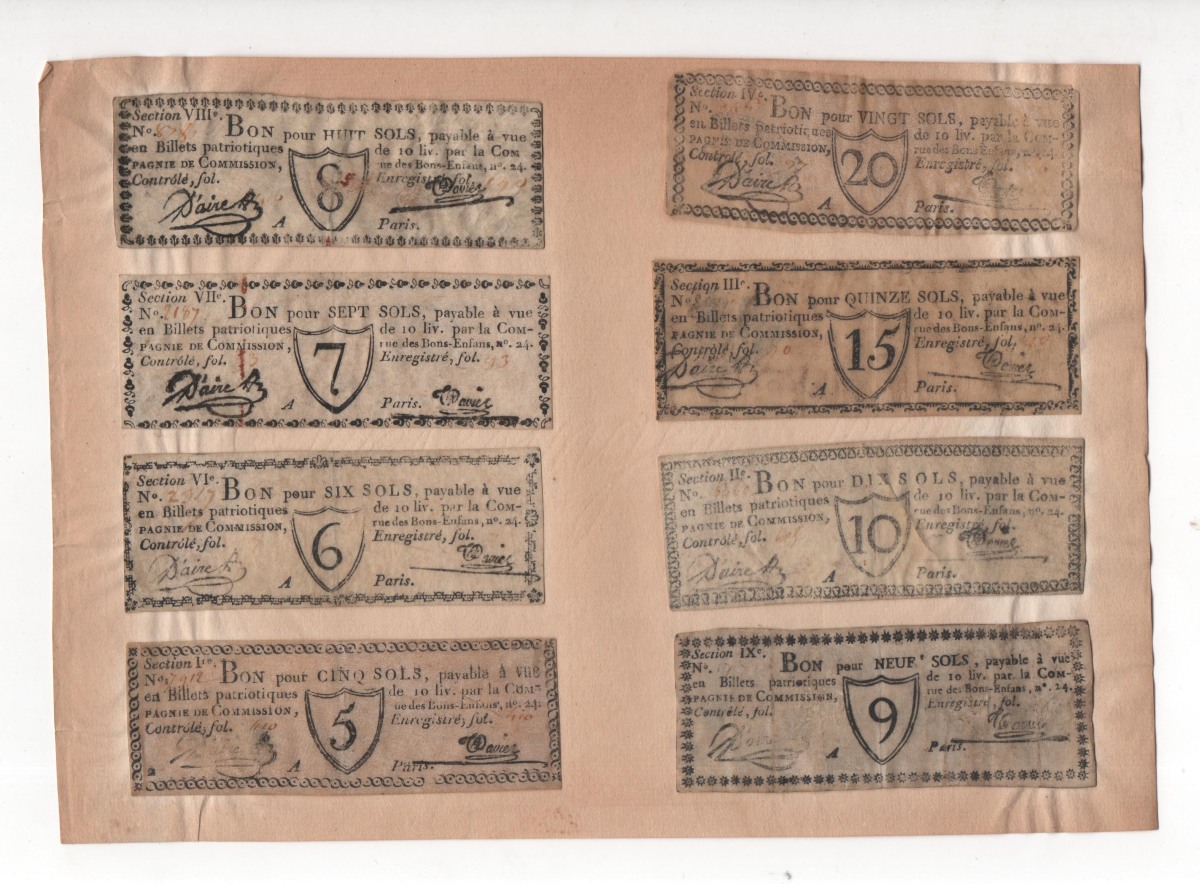 Section VIIIe.
No. BON pour HUIT SOLS, payable à vue
en Billets patriotiques de 10 liv. par la COM
PAGNIE DE COMMISSION, rue des Bons-Enfans, no. 24.
Contrôlé, fol. 8 Enregistré, fol.
D'aire
A Paris.
Section VIIe.
No. 2187 BON pour SEPT SOLS, payable à vue
en Billets patriotiques de 10 liv. par la COM-
PAGNIE DE COMMISSION, rue des Bons-Enfans, no. 24.
Contrôlé, fol. 7 Enregistré, fol. 93
D'aire
A Paris.
Section VIe.
No. BON pour SIX SOLS, payable à vue
en Billets patriotiques de 10 liv. par la COM-
PAGNIE DE COMMISSION, rue des Bons-Enfans, no. 24.
Contrôlé, fol. 6 Enregistré, fol.
D'aire
A Paris.
Section Ire.
No. 7912 BON pour CINQ SOLS, payable à vue
en Billets patriotiques de 10 liv. par la COM-
PAGNIE DE COMMISSION, ue des Bons-Enfans, no. 24.
Contrôlé, fol. 5 Enregistré, fol.
A
2
Section IVe.
No. BON pour VINGT SOLS, payable à vue
en Billets patriotiques de 10 liv. par la COM-
PAGNIE DE COMMISSION, rue des Bons-Enfans, no. 24.
Contrôlé, fol. 20 Enregistré, fol.
D'aire
A Paris.
Section IIIe.
No. BON pour QUINZE SOLS, payable à vue
en Billets patriotiques de 10 liv. par la COM-
PAGNIE DE COMMISSION, rue des Bons-Enfans, no. 24.
Contrôlé, fol. 15 Enregistré, fol.
D'aire
A Paris.
Section IIe.
No. BON pour DIX SOLS, payable à vue
en Billets patriotiques de 10 liv. par la COM-
PAGNIE DE COMMISSION, rue des Bons-Enfans, no. 24.
Contrôlé, fol. 10 Enregistré, fol.
D'aire
A Paris.
Section IXe.
No. BON pour NEUF SOLS, payable à vue
en Billets patriotiques de 10 liv. par la COM-
PAGNIE DE COMMISSION, rue des Bons-Enfans, no. 24.
Contrôlé, fol. 9 Enregistré, fol.
D'aire
A Paris.